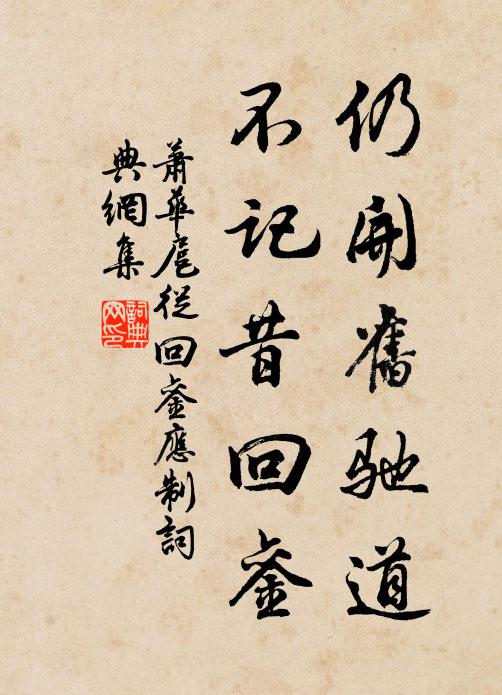 仍開舊馳道
不記昔回銮
蕭華扈從回銮應制詞
典網集
詞典
网印